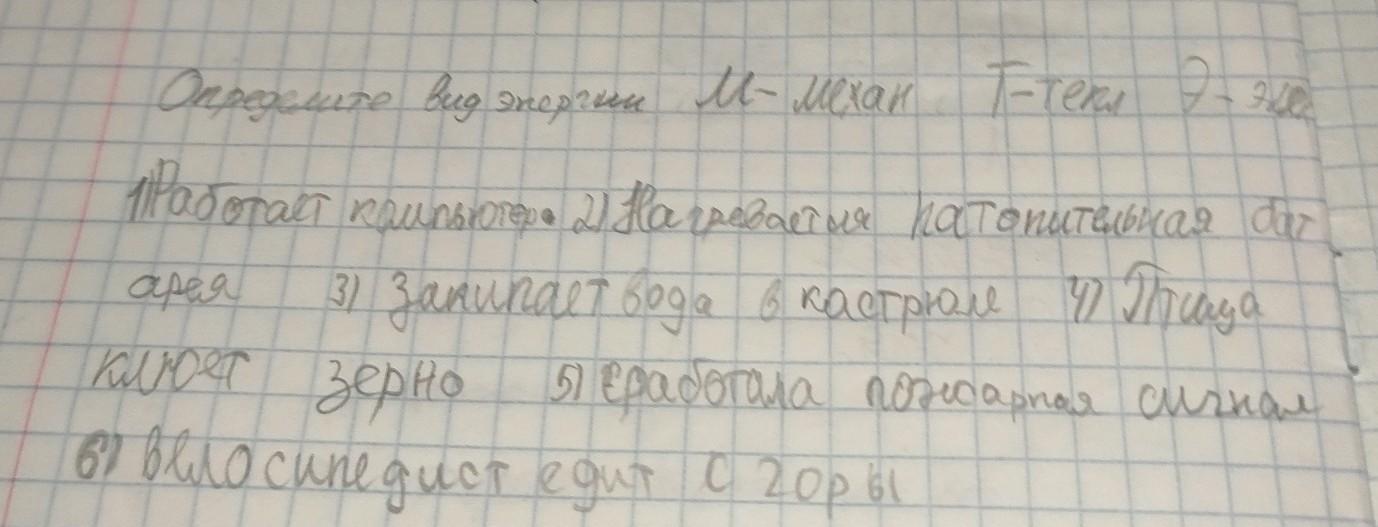 Определите вид энергии М-механ Т-тепл Э-эле
1) Работает компьютер 2) Нагревается натопительная бат
арея 3) Закипает вода в кастрюле 4) Птица
клюет зерно 5) сработала пожарная сигнал
6) велосипедист едит с горы